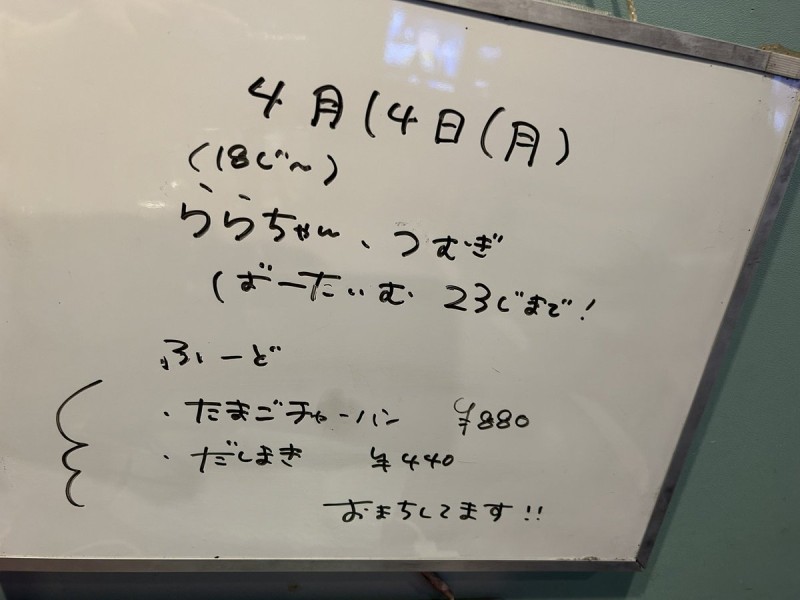 4月14日(月)
(18じ〜)
ららちゃん、つむぎ
(ばーたいむ 23じまで!
ふーど
・たまごチャーハン ¥880
・だしまき ¥440
おまちしてます!!